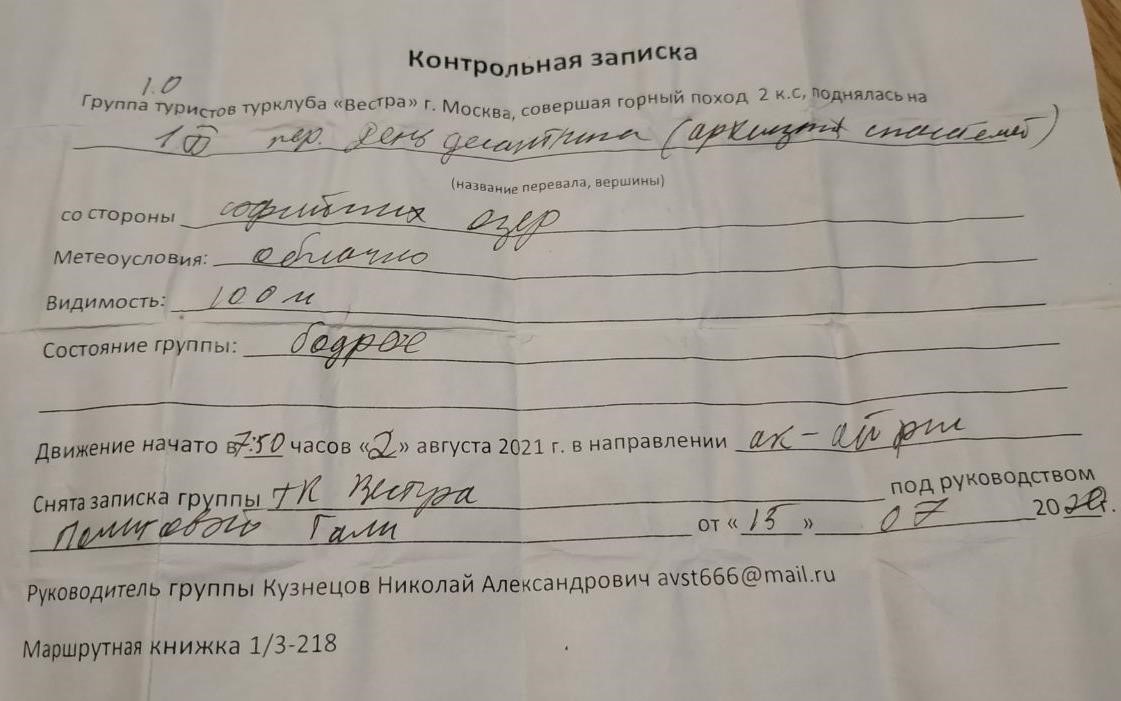 Контрольная записка
1.0
Группа туристов турклуба «Вестра» г. Москва, совершая горный поход 2 к.с, поднялась на
пер. День десантника (архызских спасателей)
(название перевала, вершины)
со стороны софийских озер
Метеоусловия: облачно
Видимость: 100 м
Состояние группы: бодрое
Движение начато в 7:50 часов «2» августа 2021 г. в направлении ак-айры
Снята записка группы т/к Вестра под руководством
Гали от «15» 07 2020г.
Руководитель группы Кузнецов Николай Александрович avst666@mail.ru
Маршрутная книжка 1/3-218